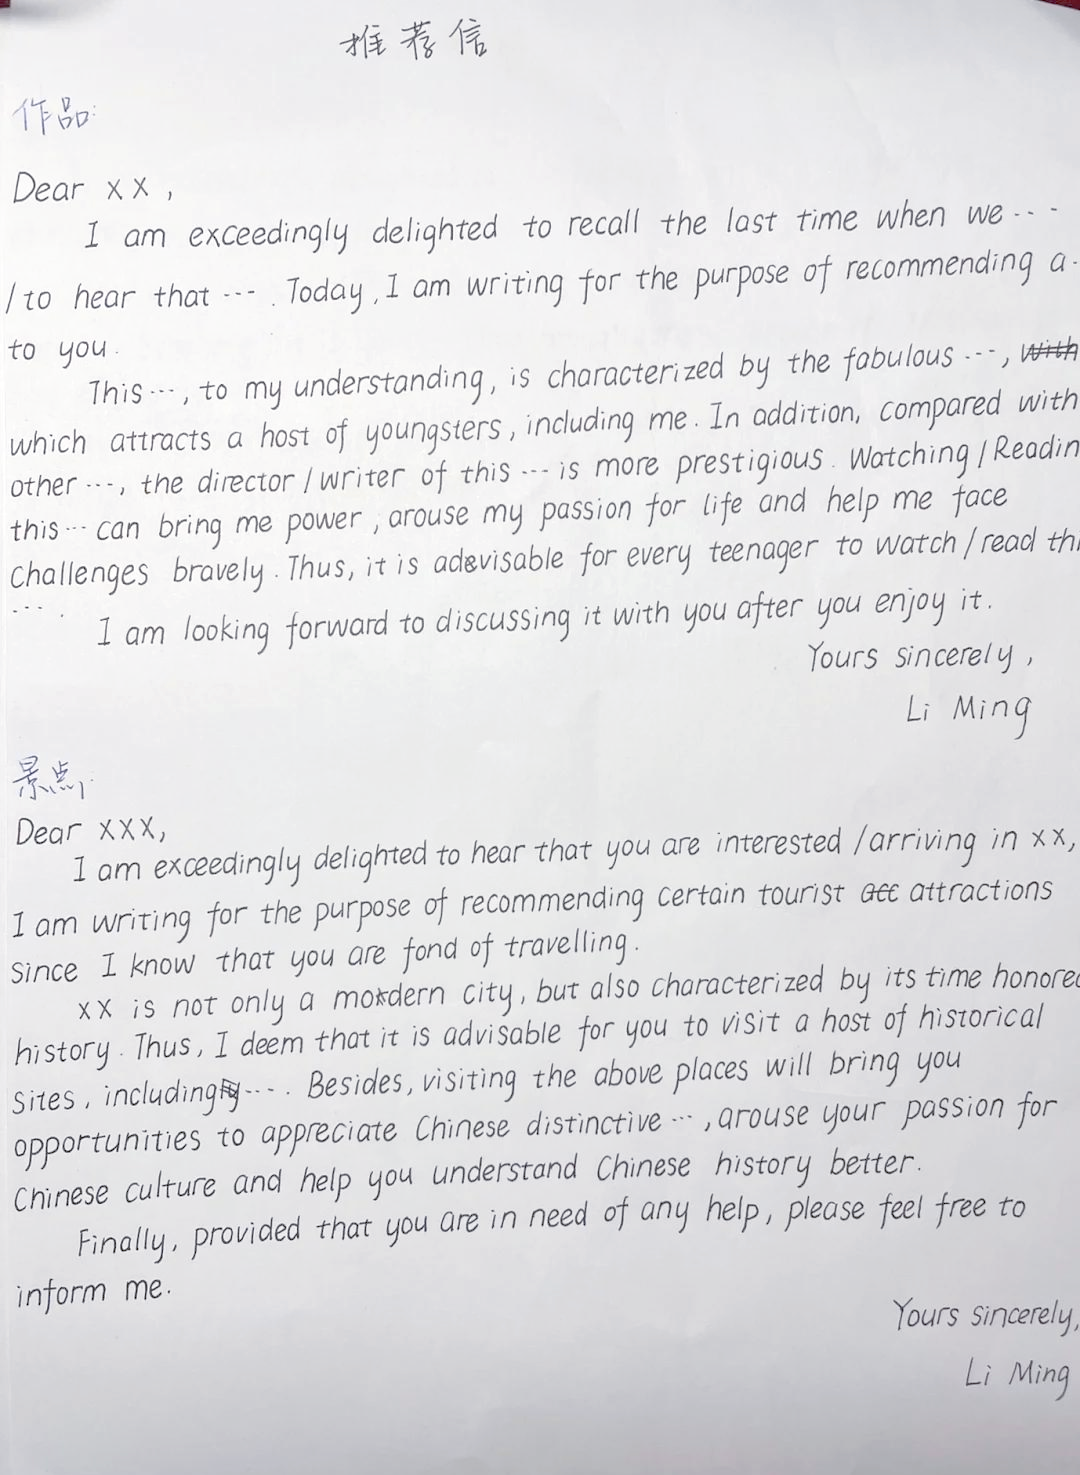 推荐信
作品:
Dear XX,
I am exceedingly delighted to recall the last time when we ...
/to hear that ... . Today, I am writing for the purpose of recommending a
to you.
This ..., to my understanding, is characterized by the fabulous ...,
which attracts a host of youngsters, including me. In addition, compared with
other ..., the director/writer of this ... is more prestigious. Watching/Readin
this ... can bring me power, arouse my passion for life and help me face
challenges bravely. Thus, it is advisable for every teenager to watch/read thi
... .
I am looking forward to discussing it with you after you enjoy it.
Yours sincerely,
Li Ming
景点:
Dear XXX,
I am exceedingly delighted to hear that you are interested/arriving in XX,
I am writing for the purpose of recommending certain tourist attractions
since I know that you are fond of travelling.
XX is not only a modern city, but also characterized by its time honored
history. Thus, I deem that it is advisable for you to visit a host of historical
sites, including ... . Besides, visiting the above places will bring you
opportunities to appreciate Chinese distinctive ..., arouse your passion for
Chinese culture and help you understand Chinese history better.
Finally, provided that you are in need of any help, please feel free to
inform me.
Yours sincerely,
Li Ming